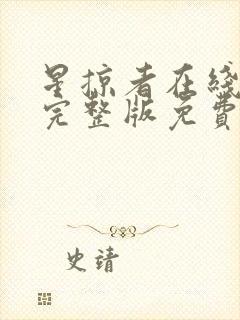 星掠者在线
完整版免費
史靖